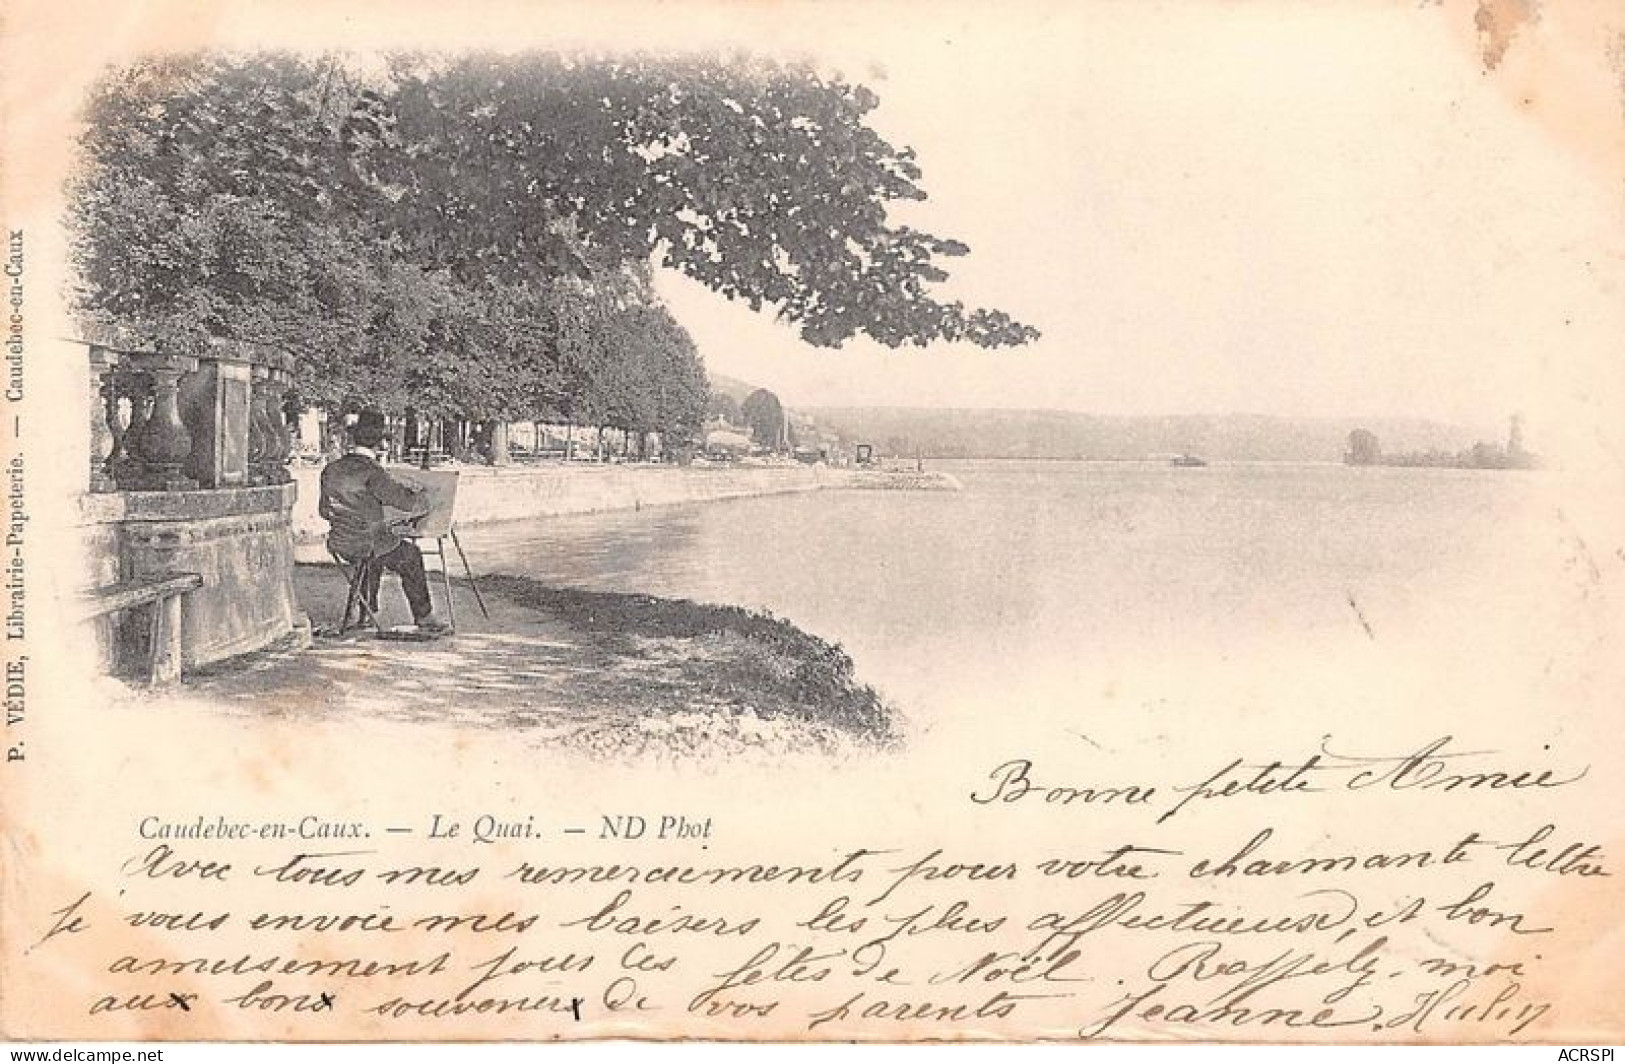 P. VÉDIE, Librairie-Papeterie. — Caudebec-en-Caux
Caudebec-en-Caux. — Le Quai. — ND Phot
Bonne petite Amie
Avec tous mes remerciements pour votre charmante lettre
je vous envoie mes baisers les plus affectueux, et bon
amusement pour les fêtes de Noël. Rappelez-moi
aux bons souvenirs de vos parents Jeanne
www.delcampe.net
ACRSPI